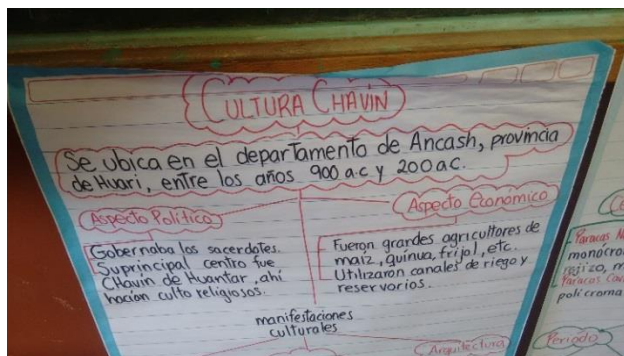 CULTURA CHAVIN
Se ubica en el departamento de Ancash, provincia
de Huari, entre los años 900 a.c y 200 a.C.
Aspecto Político
Gobernaba los sacerdotes.
Su principal centro fue
Chavin de Huantar, ahi
hacian culto religiosos.
Aspecto Económico
Fueron grandes agricultores de
maiz, quinua, frijol, etc.
Utilizaron canales de riego y
reservorios.
manifestaciones
culturales
Arquitectura
Paracas
monocro
rojizo, m
Paracas Cav
policroma
Periodo